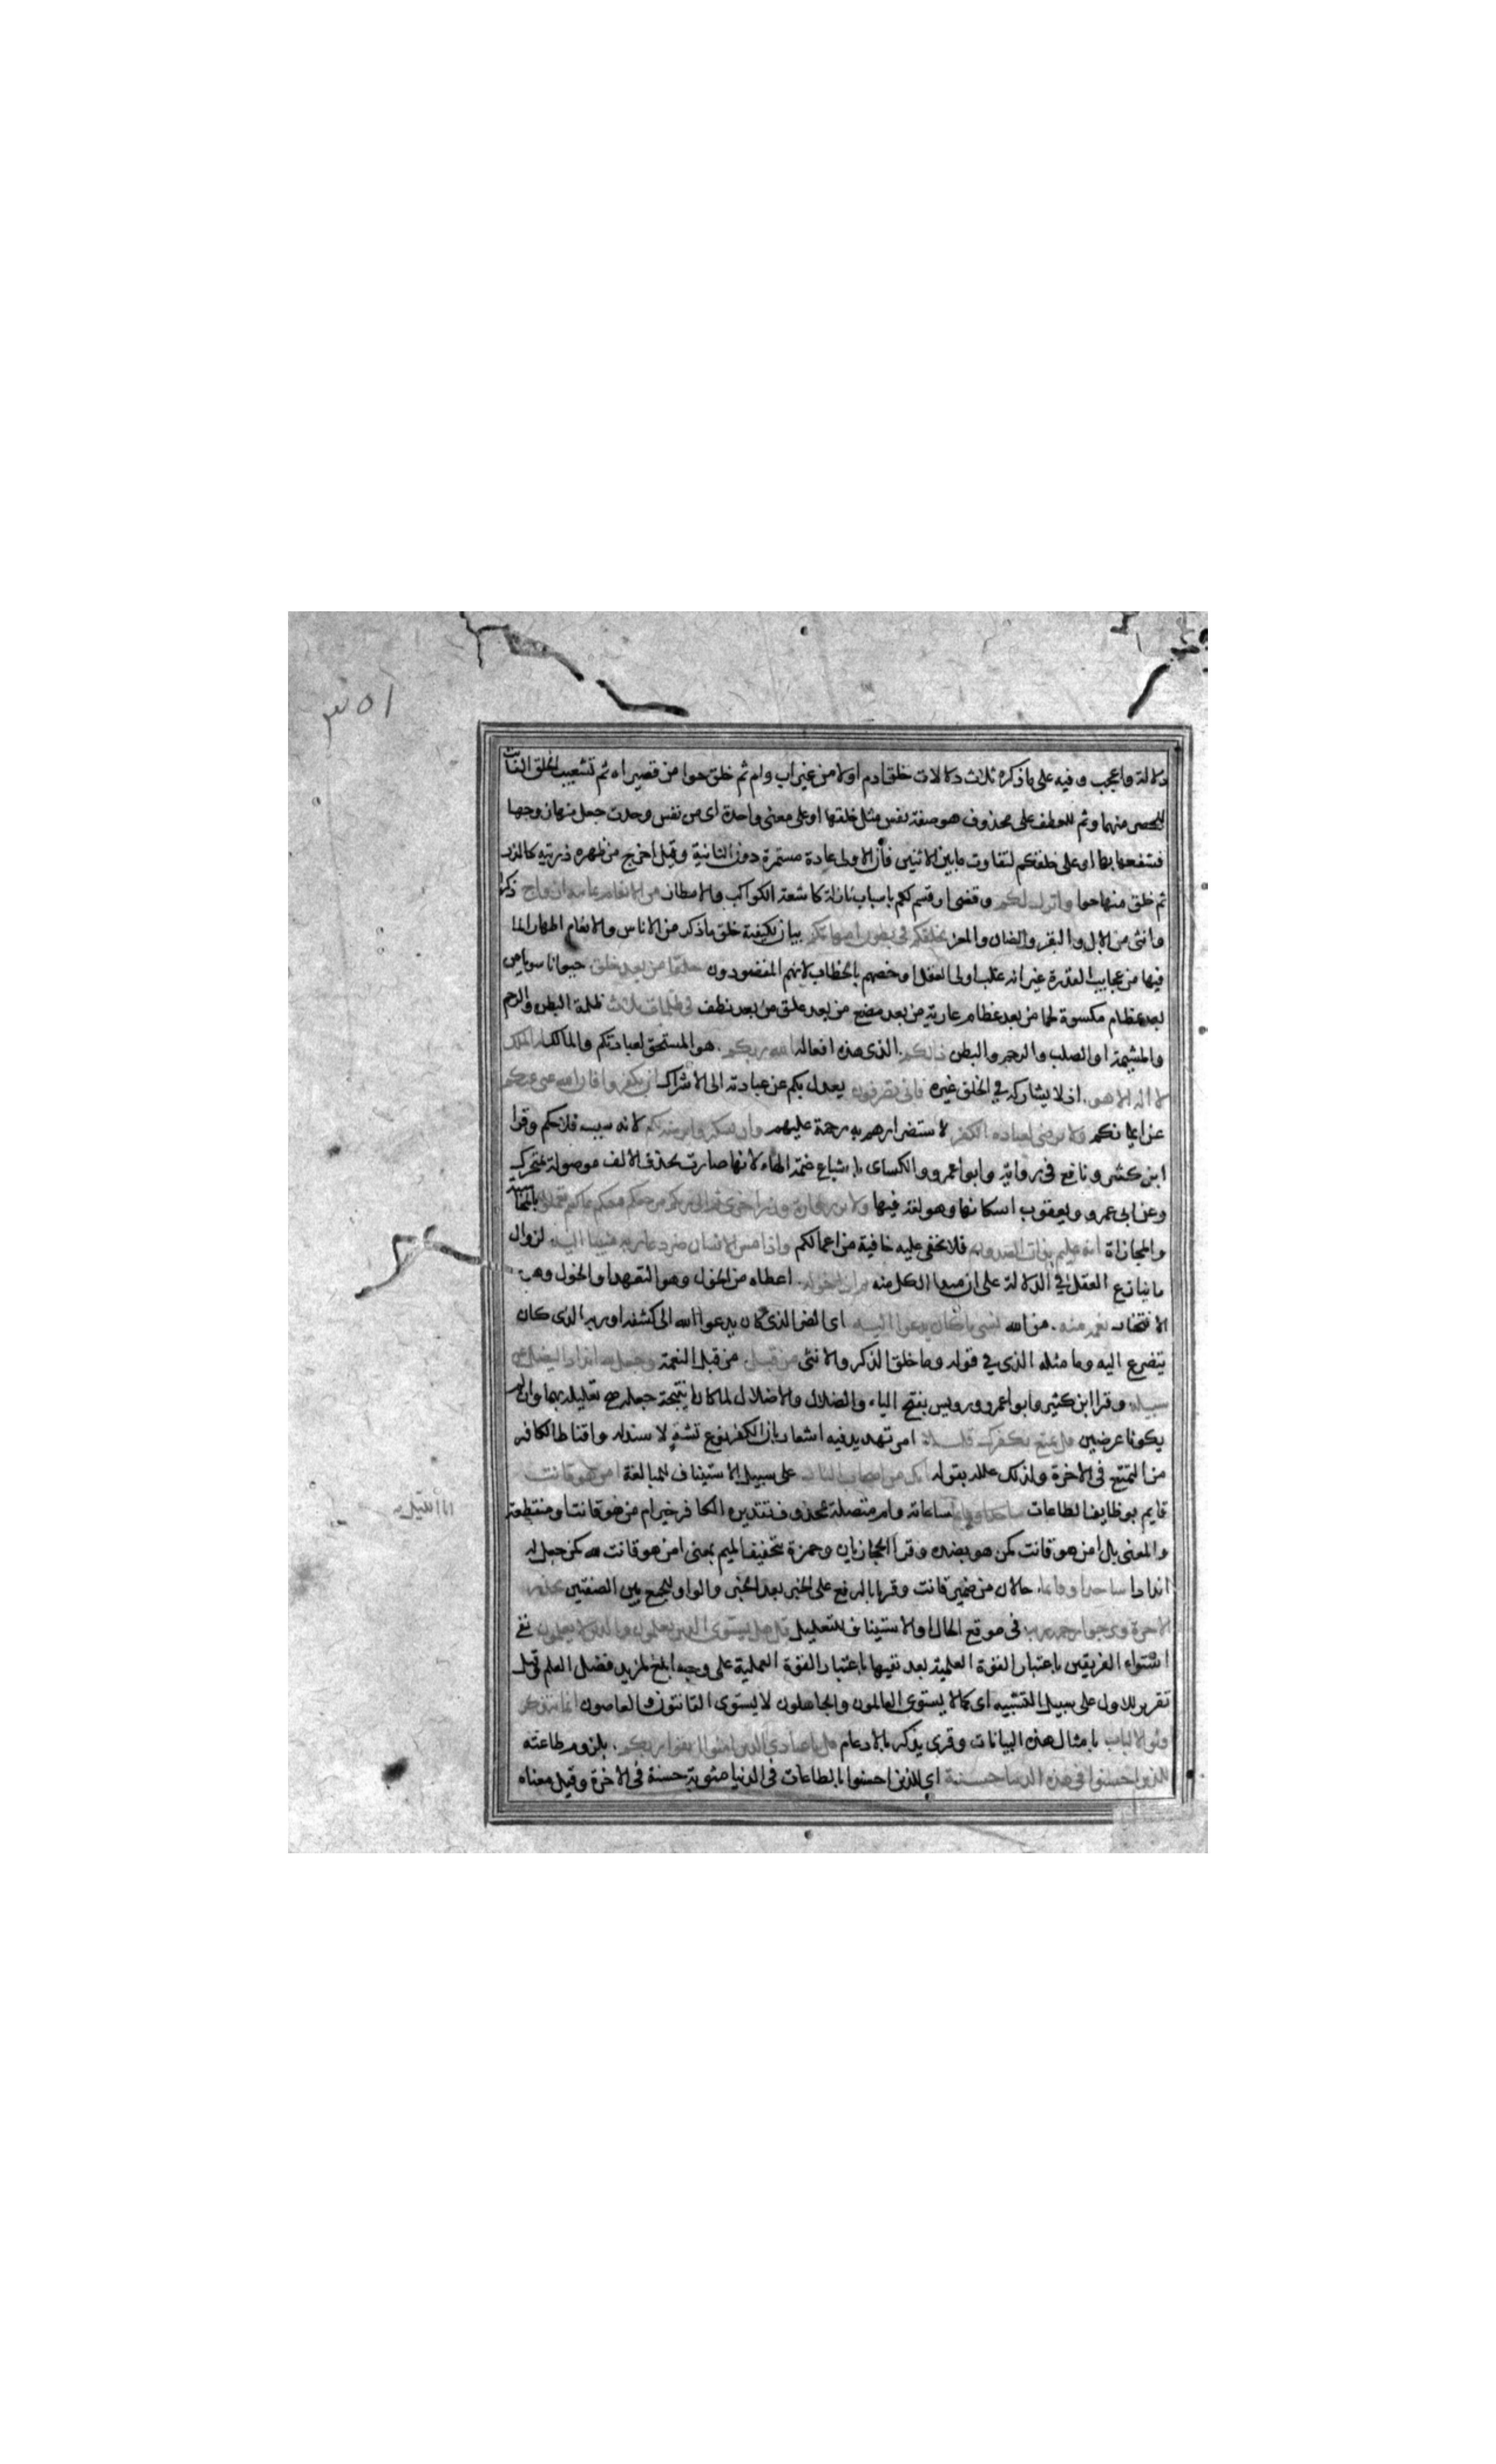 ٣٥١
دلالة واعجب وفيه على ماذكره ثلاث دلالات خلق ادم اولا من غير اب وام ثم خلق حوا من قصيراه ثم تشعيب الخلق الفائت
للحصر منهما وثم للعطف على محذوف هو صفة نفس مثل خلقها او على معنى واحدة اى من نفس وحدت جعل منها زوجها
فشفعها بها او على خلقكم لتفاوت مابين الاثنين فان الاولى عادة مستمرة دون الثانية وقيل اخرج من ظهره ذريته كالذر
ثم خلق منها حوا وانزل لكم وقضى او قسم لكم باسباب نازلة كاشعة الكواكب والامطار من الانعام ثمانية ازواج ذكرا
وانثى من الابل والبقر والضان والمعز يخلقكم فى بطون امهاتكم بيان لكيفية خلق ماذكر من الاناس والانعام اظهارا لما
فيها من عجايب القدرة غير انه غلب اولى العقل او خصهم بالخطاب لانهم المقصودون خلقا من بعد خلق حيوانا سويا من
بعد عظام مكسوة لحما من بعد عظام عارية من بعد مضغ من بعد علق من بعد نطف فى ظلمات ثلاث ظلمة البطن والرحم
والمشيمة او الصلب والرحم والبطن ذلكم الذى هذه افعاله الله ربكم هو المستحق لعبادتكم والمالك له الملك
لا اله الا هو اذ لا يشاركه في الخلق غيره فانى تصرفون يعدل بكم عن عبادته الى الاشراك ان تكفروا فان الله غنى عنكم
عن ايمانكم ولا يرضى لعباده الكفر لاستضرارهم به رحمة عليهم وان تشكروا يرضه لكم لانه سبب فلاحكم وقرا
ابن كثير ونافع فى رواية وابو عمرو والكساى باشباع ضمة الهاء لانها صارت بحذف الالف موصولة بمتحرك
وعن ابى عمرو ويعقوب اسكانها وهو لغة فيها ولا تزر وازرة وزر اخرى ثم الى ربكم مرجعكم فينبئكم بما كنتم تعملون بالمحاسبة
والمجازاة انه عليم بذات الصدور فلا تخفى عليه خافية من اعمالكم واذا مس الانسان ضر دعا ربه منيبا اليه لزوال
ما ينازع العقل فى الدلالة على ان مبدا الكل منه ثم اذا خوله اعطاه من الخول وهو التعهد او الخول وهو
الافتخار نعمة منه من الله نسى ما كان يدعوا اليه اى الضر الذى كان يدعوا الله الى كشفه او ربه الذى كان
يتضرع اليه وما مثله الذى في قوله وما خلق الذكر والانثى من قبل من قبل النعمة وجعل لله اندادا ليضل عن
سبيله وقرا ابن كثير وابو عمرو ورويس بفتح الياء والضلال والاضلال لما كانا نتيجة جعله صح تعليله بهما وان لم
يكونا عرضين قل تمتع بكفرك قليلا امر تهديد فيه اشعار بان الكفر نوع تشه لا سند له واقناط للكافر
من التمتع فى الاخرة ولذلك علله بقوله انك من اصحاب النار على سبيل الاستيناف للمبالغة امن هو قانت
قايم بوظايف الطاعات ساجدا وقايما ساعاته وام متصلة بمحذوف تقديره الكافر خير ام من هو قانت او منقطعة
والمعنى بل امن هو قانت كمن هو بضده وقرا الحجازيان وحمزة بتخفيف الميم بمعنى امن هو قانت لله كمن جعل له
اندادا ساجدا وقايما حالان من ضمير قانت وقريا بالرفع على الخبر بعد الخبر والواو للجمع بين الصفتين يحذر
الاخرة ويرجوا رحمة ربه فى موقع الحال او الاستيناف للتعليل قل هل يستوى الذين يعلمون والذين لا يعلمون نفى
استواء الفريقين باعتبار القوة العلمية بعد نفيها باعتبار القوة العملية على وجه ابلغ لمزيد فضل العلم وقيل
تقرير للاول على سبيل التشبيه اى كما لا يستوى العالمون والجاهلون لا يستوى القانتون والعاصون انما يتذكر
اولوا الالباب بامثال هذه البيانات وقرى يذكر بالادغام قل يا عبادي الذين امنوا اتقوا ربكم بلزوم طاعته
للذين احسنوا فى هذه الدنيا حسنة اي للذين احسنوا بالطاعات فى الدنيا مثوبة حسنة فى الاخرة وقيل معناه
انا الليل